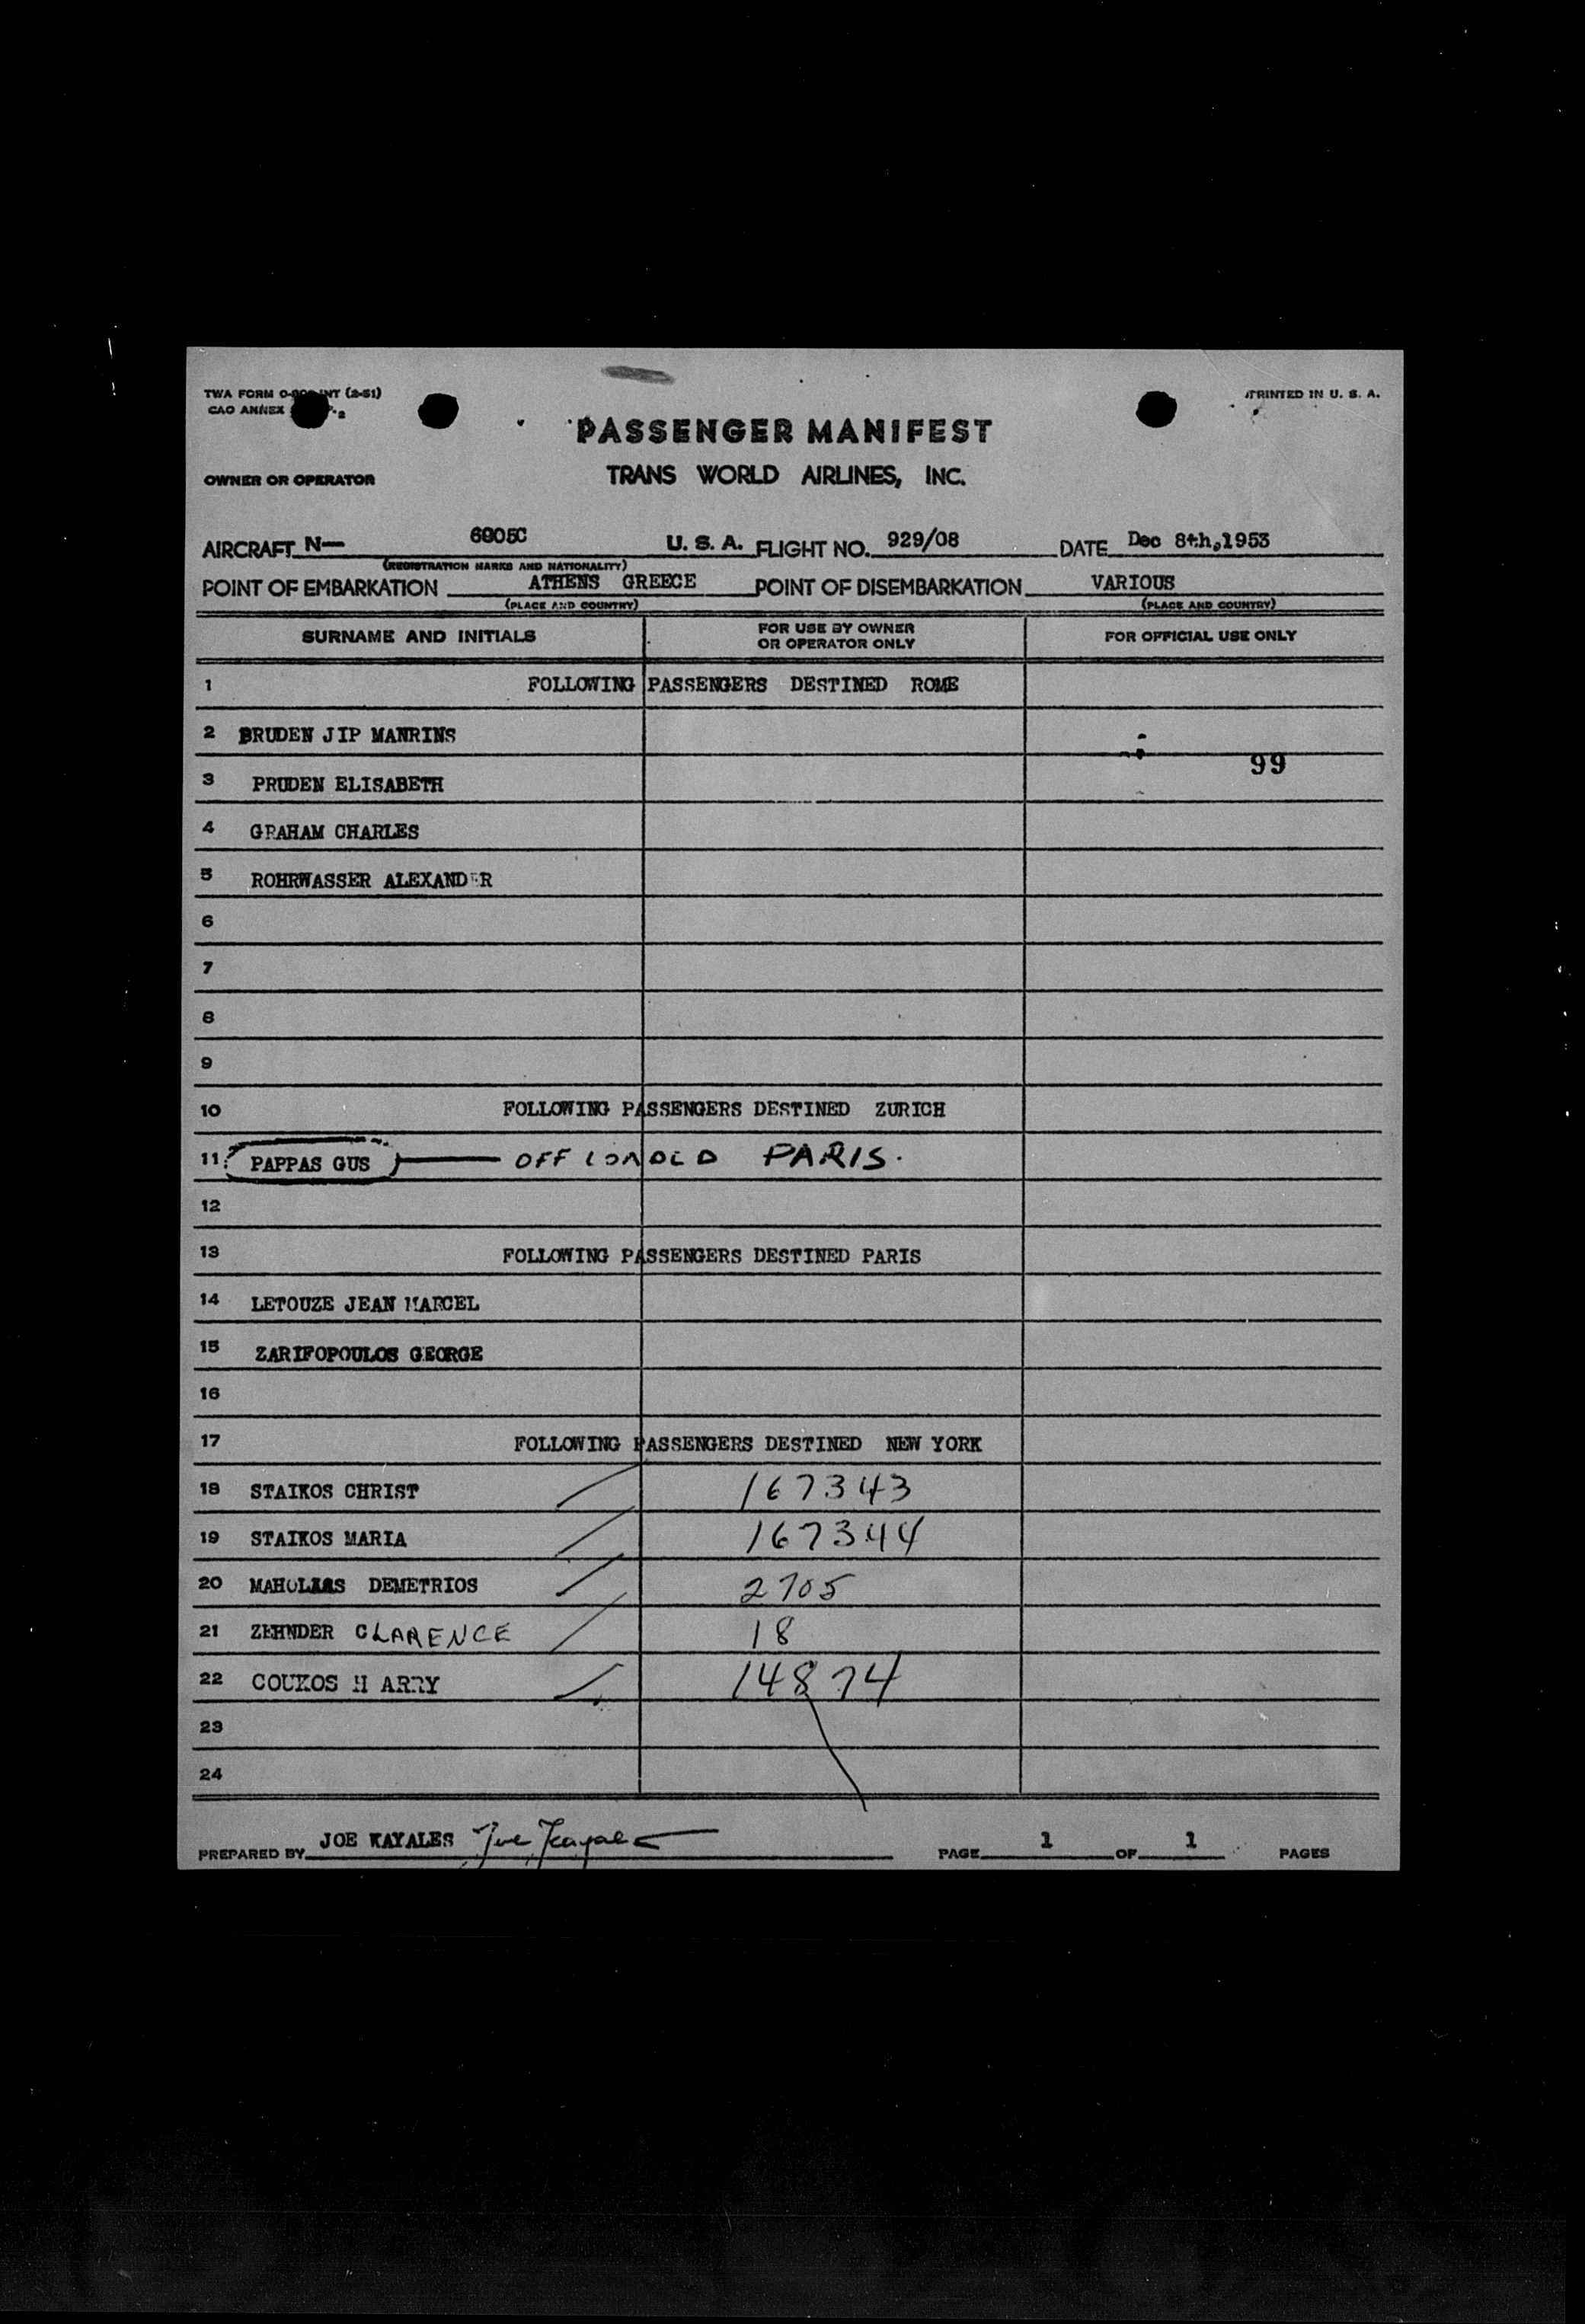 TWA FORM (2-51)
PRINTED IN U. S. A.
CAO ANNEX
PASSENGER MANIFEST
OWNER OR OPERATOR TRANS WORLD AIRLINES, INC.
AIRCRAFT N— 6905C U. S. A. FLIGHT NO. 929/08 DATE Dec 8th,1953
(REGISTRATION MARKS AND NATIONALITY)
POINT OF EMBARKATION ATHENS GREECE POINT OF DISEMBARKATION VARIOUS
(PLACE AND COUNTRY) (PLACE AND COUNTRY)
SURNAME AND INITIALS FOR USE BY OWNER OR OPERATOR ONLY FOR OFFICIAL USE ONLY
1 FOLLOWING PASSENGERS DESTINED ROME
2 BRUDEN JIP MANRINS
99
3 PRUDEN ELISABETH
4 GRAHAM CHARLES
5 ROHRWASSER ALEXANDER
6
7
8
9
10 FOLLOWING PASSENGERS DESTINED ZURICH
11 PAPPAS GUS OFF LOADED PARIS.
12
13 FOLLOWING PASSENGERS DESTINED PARIS
14 LETOUZE JEAN MARCEL
15 ZARIFOPOULOS GEORGE
16
17 FOLLOWING PASSENGERS DESTINED NEW YORK
18 STAIKOS CHRIST 167343
19 STAIKOS MARIA 167344
20 DEMETRIOS 2705
21 ZEHNDER CLARENCE 18
22 COUKOS H ARRY 14874
23
24
PREPARED BY JOE KAYALES Joe Kayales PAGE 1 OF 1 PAGES